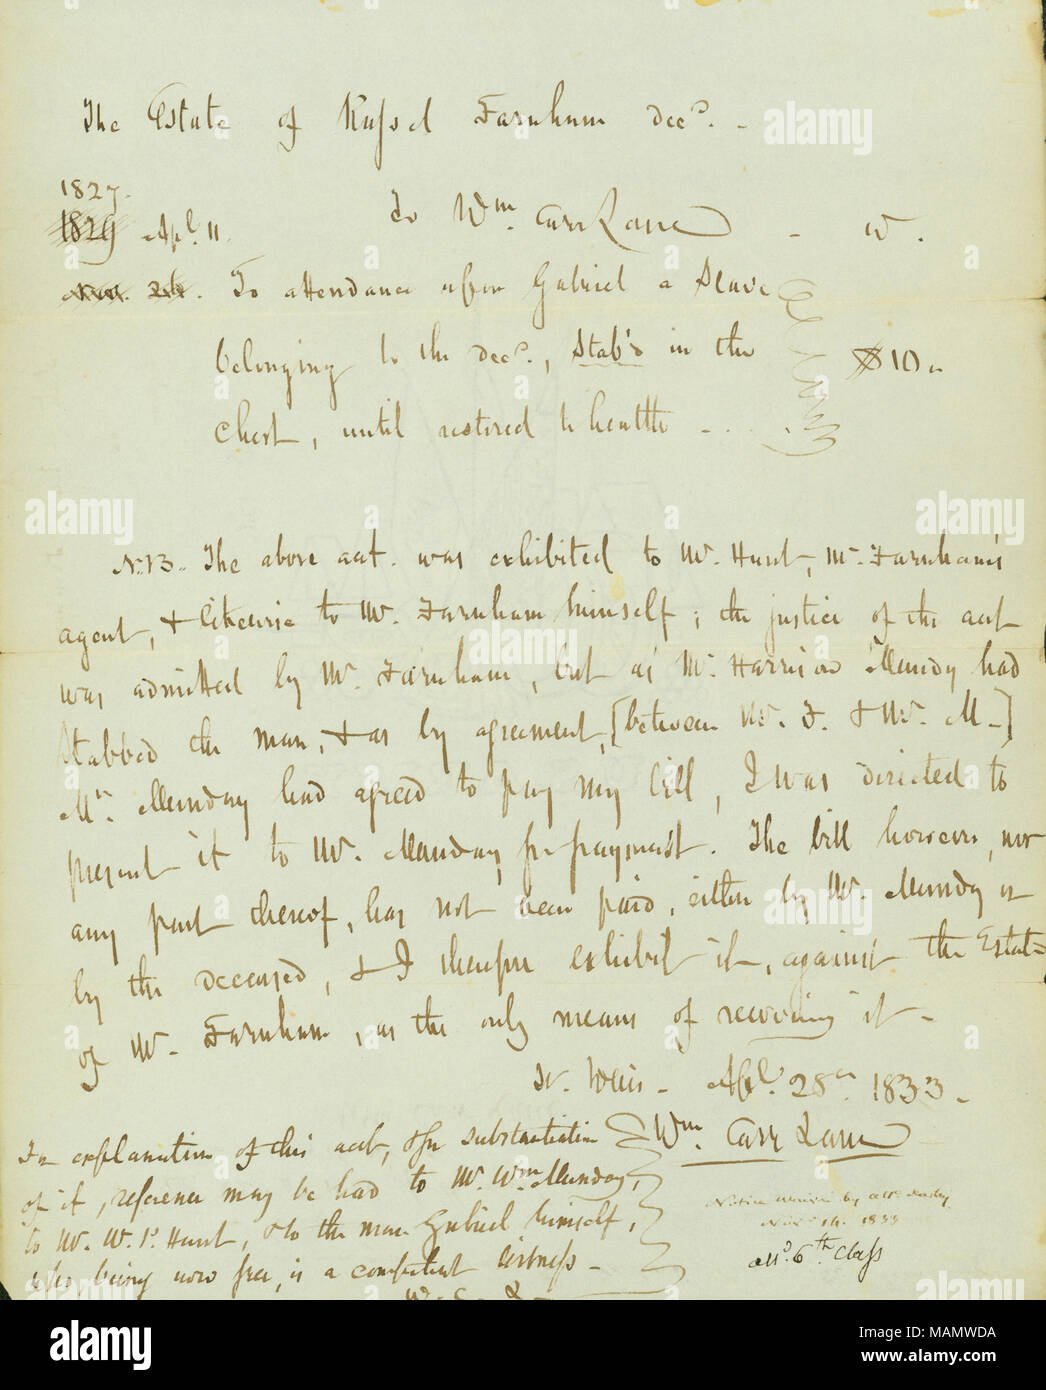 The Estate of Russel Farnham decd. -
1827.
1829 Apl. 11. To Wm. Carr Lane - W.
Nov. 26. To attendance upon Gabriel a Slave
belonging to the decd., Stab'd in the $10.
chest, until restored to health - . . .
N.B. The above act. was exhibited to Mr. Hunt, Mr. Farnham's
agent, & likewise to Mr. Farnham himself; the justice of the act
was admitted by Mr. Farnham, but as Mr. Harrison Munday had
stabbed the man, & as by agreement, [between Mr. F. & Mr. M-]
Mr. Munday had agreed to pay my bill, I was directed to
present it to Mr. Munday for payment. The bill however, nor
any part thereof, has not been paid, either by Mr. Munday or
by the deceased, & I therefore exhibit it, against the Estate
of Mr. Farnham, as the only means of receiving it -
St. Louis - Apl. 28th 1833 -
Wm. Carr Lane
In explanation of this act, & for substantiation
of it, reference may be had to Mr. Wm Munday,
to Mr. W. P. Hunt, & to the man Gabriel himself,
who, being now free, is a competent witness -
W. C. L -
Notice waived by
Novr 14. 1833
alld. 6th Class
alamy
Image ID: MAMWDA
www.alamy.com